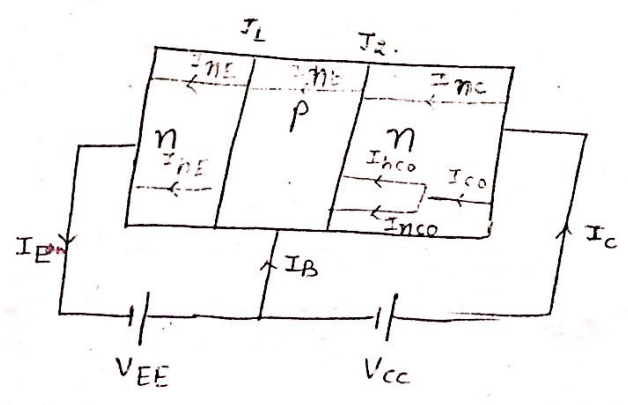 J1 J2.
InE InE Inc
p
n n
InE Ihco Ico
Inco
IE IB Ic
VEE VCC